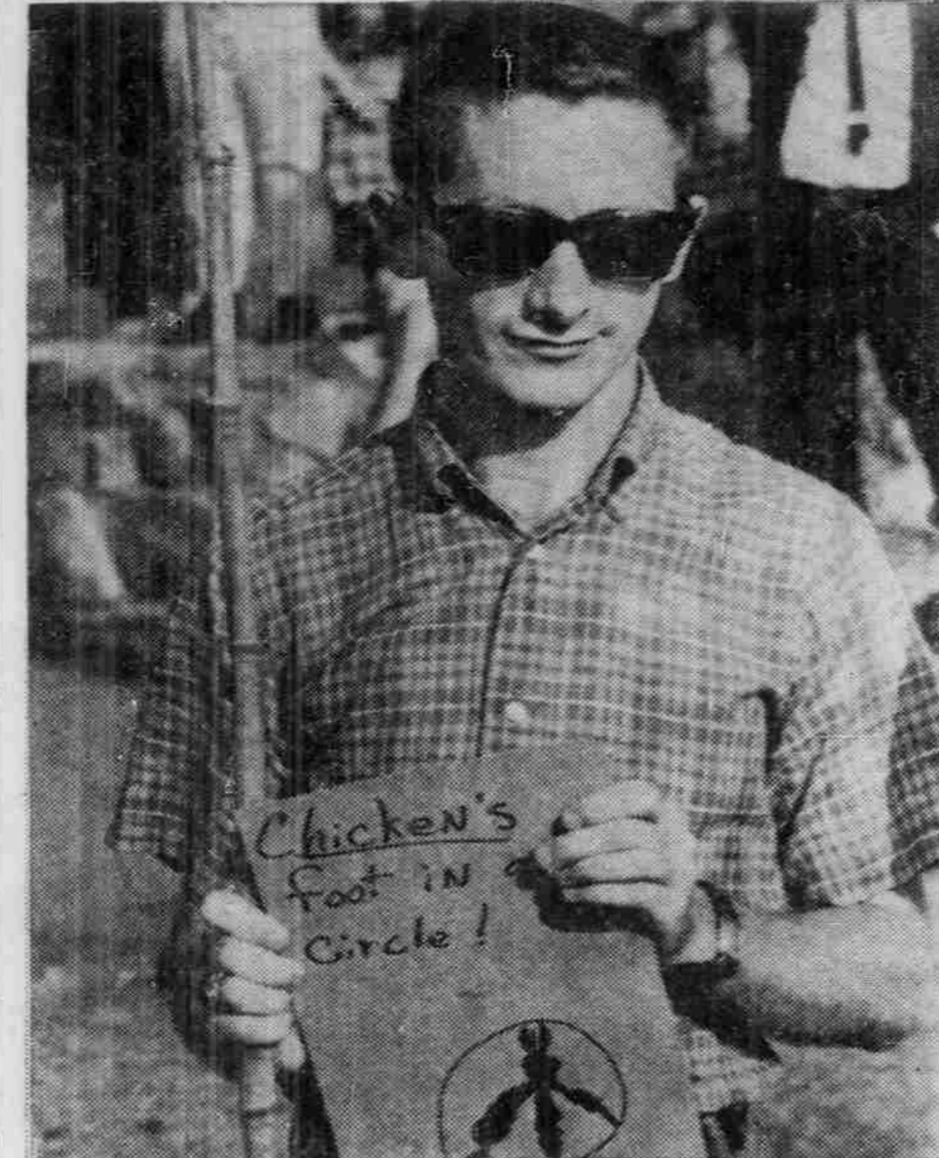 Chicken's
foot in a
Circle!